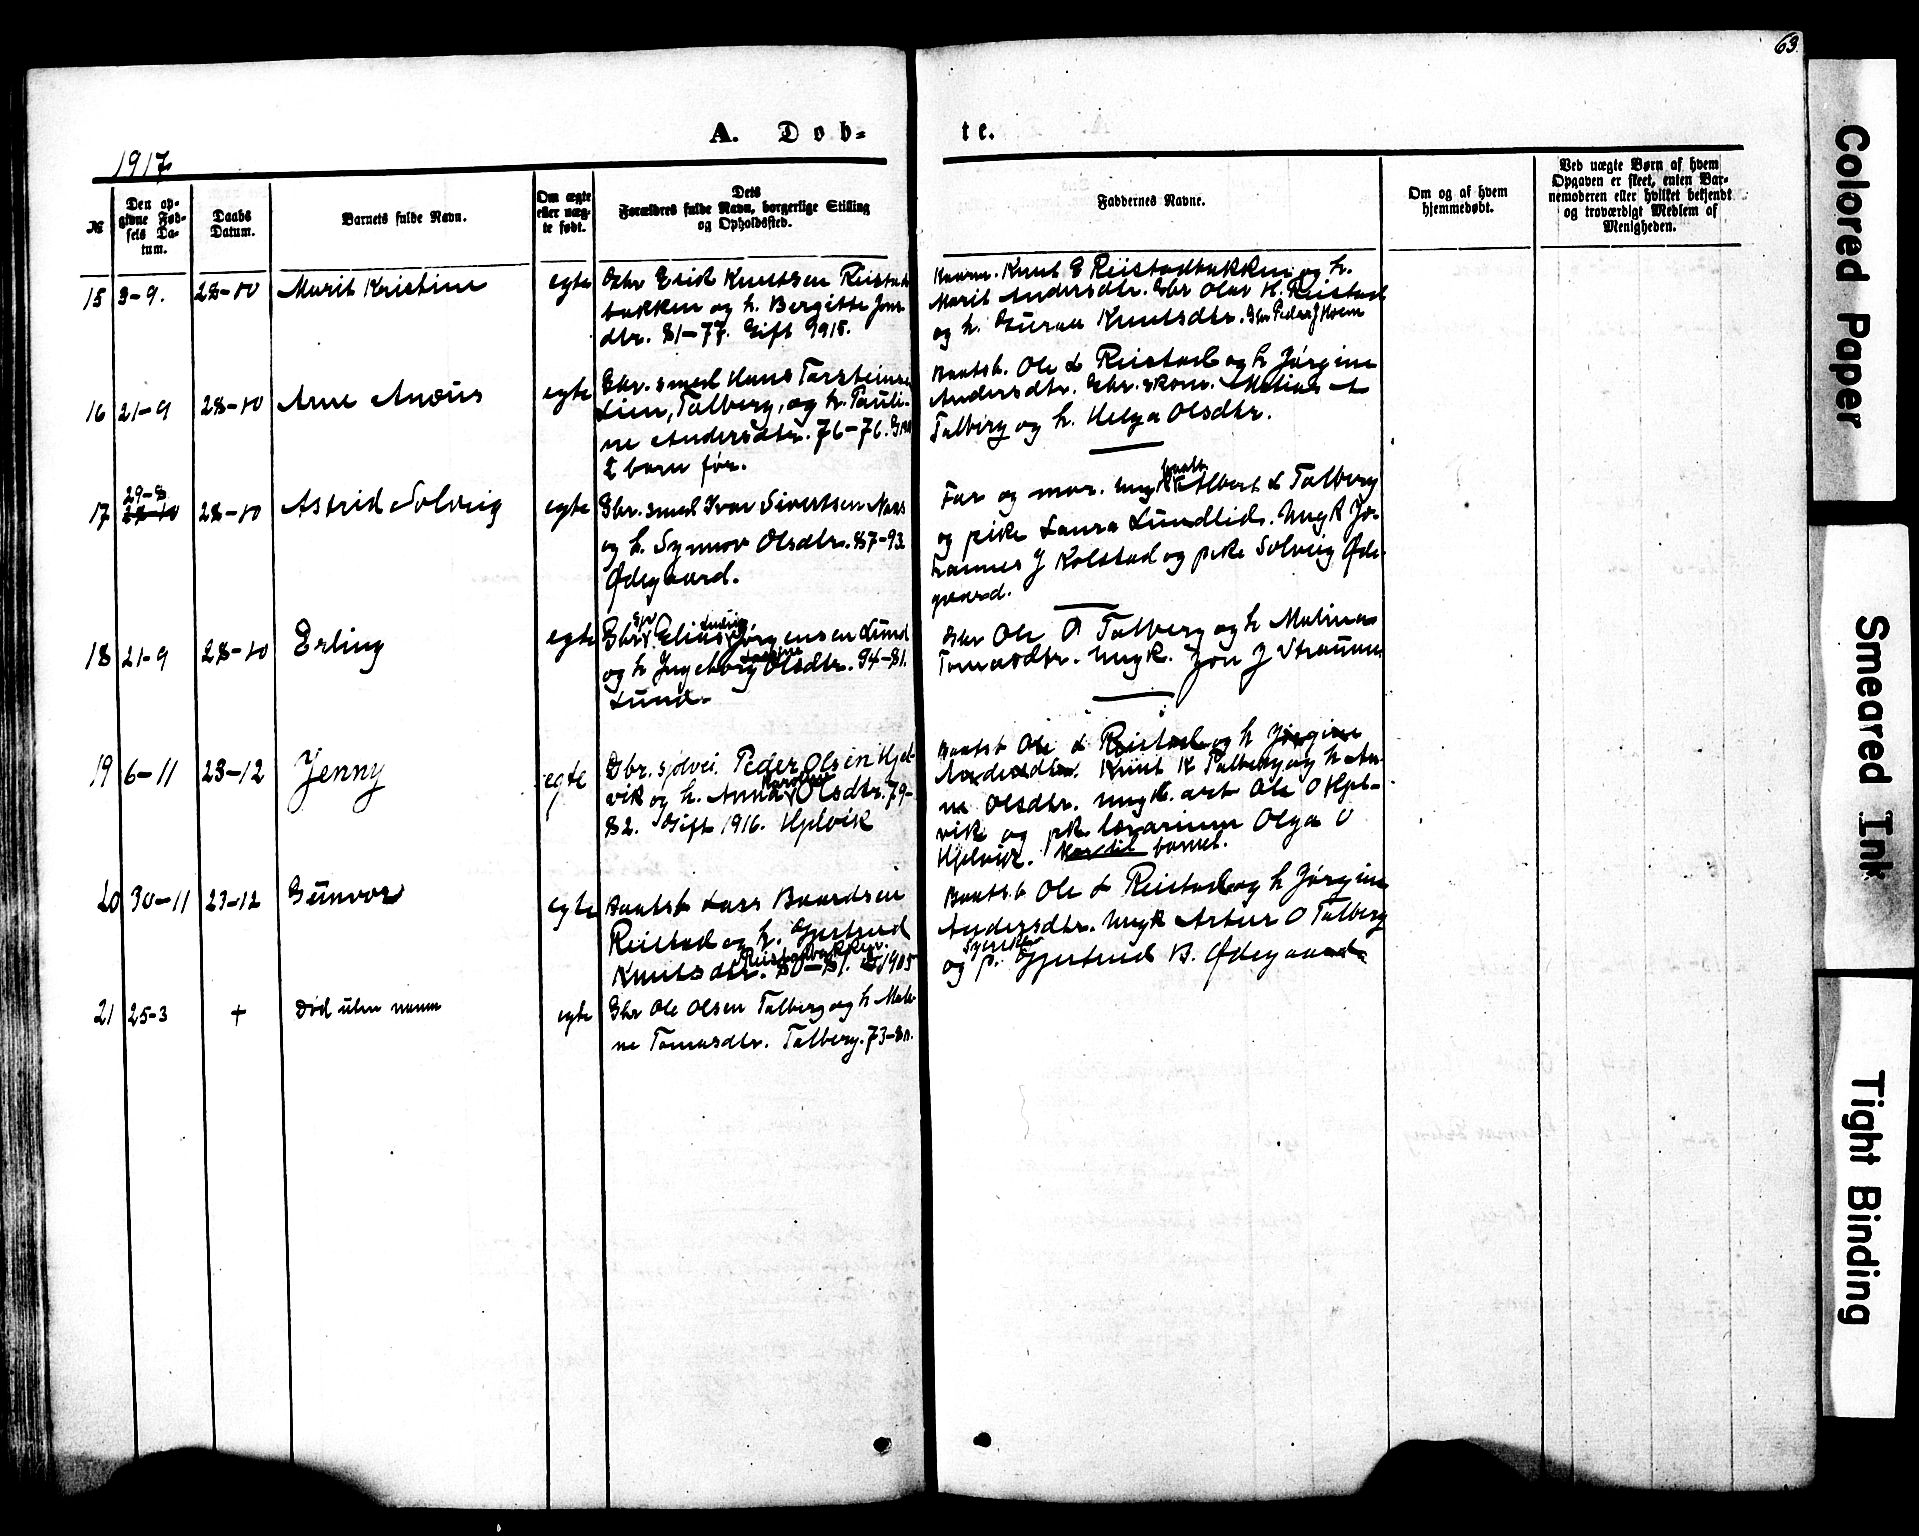 63.
A. Døb-
te.
1917
№
Den op-
givne Fød-
sels Da-
tum.
Daabs
Datum.
Barnets fulde Navn.
Om ægte
eller uæg-
te født.
Dets
Forældres fulde Navn, borgerlige Stilling
og Opholdssted.
Faddernes Navne.
Om og af hvem
hjemmedøbt.
Ved uægte Børn af hvem
Opgaven er skeet, enten Bar-
nemoderen eller hvilket bekjendt
og troværdigt Medlem af
Menigheden.
15 3-9. 28-10 Marit Kristine egte Gbr Erik Knutsen Reistad-
bakken og h. Bergitte Jons-
dtr. 81-77. Gift 1915.
Knut E Reistadbakken og h.
Marit Andersdtr. Gbr Olav K. Reistad
og h. Guraa Knutsdtr. Gbr Peder J Hoem
16 21-9 28-10 Arne Anøus egte Gbr. smed Hans Torsteinsen
Lien, Talberg, og h. Pauli-
ne Andersdtr. 76-76.
2 barn før.
Baatsb. Ole L Reistad og h Jørgine
Andersdtr. Gbr. skom. Matias A
Talberg og h. Helga Olsdtr.
17 29-8 28-10 28-10 Astrid Solveig egte Gbr. smed Ivar Sivertsen Naas
og h. Synnøv Olsdtr. 87-93
Ødegaard.
Far og mor. Ungk baatb. Albert L Talberg
og pike Laura Lundlid. Ungk Jo-
hannes J Kolstad og pike Solveig Øde-
gaard.
18 21-9 28-10 Erling egte Gbr. Elias Ludvig Jørgensen Lund
og h Ingeborg Olsdtr. 94-81.
Lund.
Gbr Ole O Talberg og h Malina
Tomasdtr. Ungk. Jon J Straumen
19 6-11 23-12 Jenny egte Gbr. Peder Olsen Hjel-
vik og h. Anna Karoline Olsdtr. 79-
82. Gift 1916. Hjelvik
Baatsb Ole L Reistad og h Jørgine
Andersdtr. Knut K Talberg og h An-
ne Olsdtr. Ungk. Ole O Hjel-
vik og pk. lærarinne Olga O
Hjelvik. Mor til barnet.
20 30-11 23-12 Gunvor egte Baatsb Lars Baardsen
Reistad og h. Gjertrud
Knutsdtr. Reistadbakken. 80-81. 1905
Baatsb Ole L Reistad og h Jørgine
Andersdtr. Ungk Artur O Talberg
og p. syerske Gjertrud B. Ødegaard
21 25-3 + Død uten namn egte Gbr Ole Olsen Talberg og h Mali-
ne Tomasdtr. Talberg. 73-80.
Colored Paper
Smeared Ink
Tight Binding